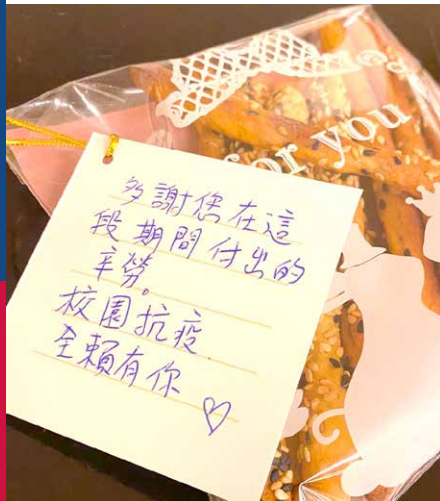 for you
多謝您在這
段期間付出的
辛勞。
校園抗疫
全賴有你 ♡